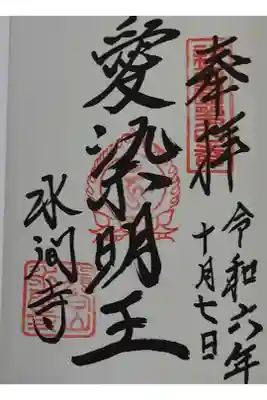 奉拝
令和六年
十月七日
愛染明王
水間寺